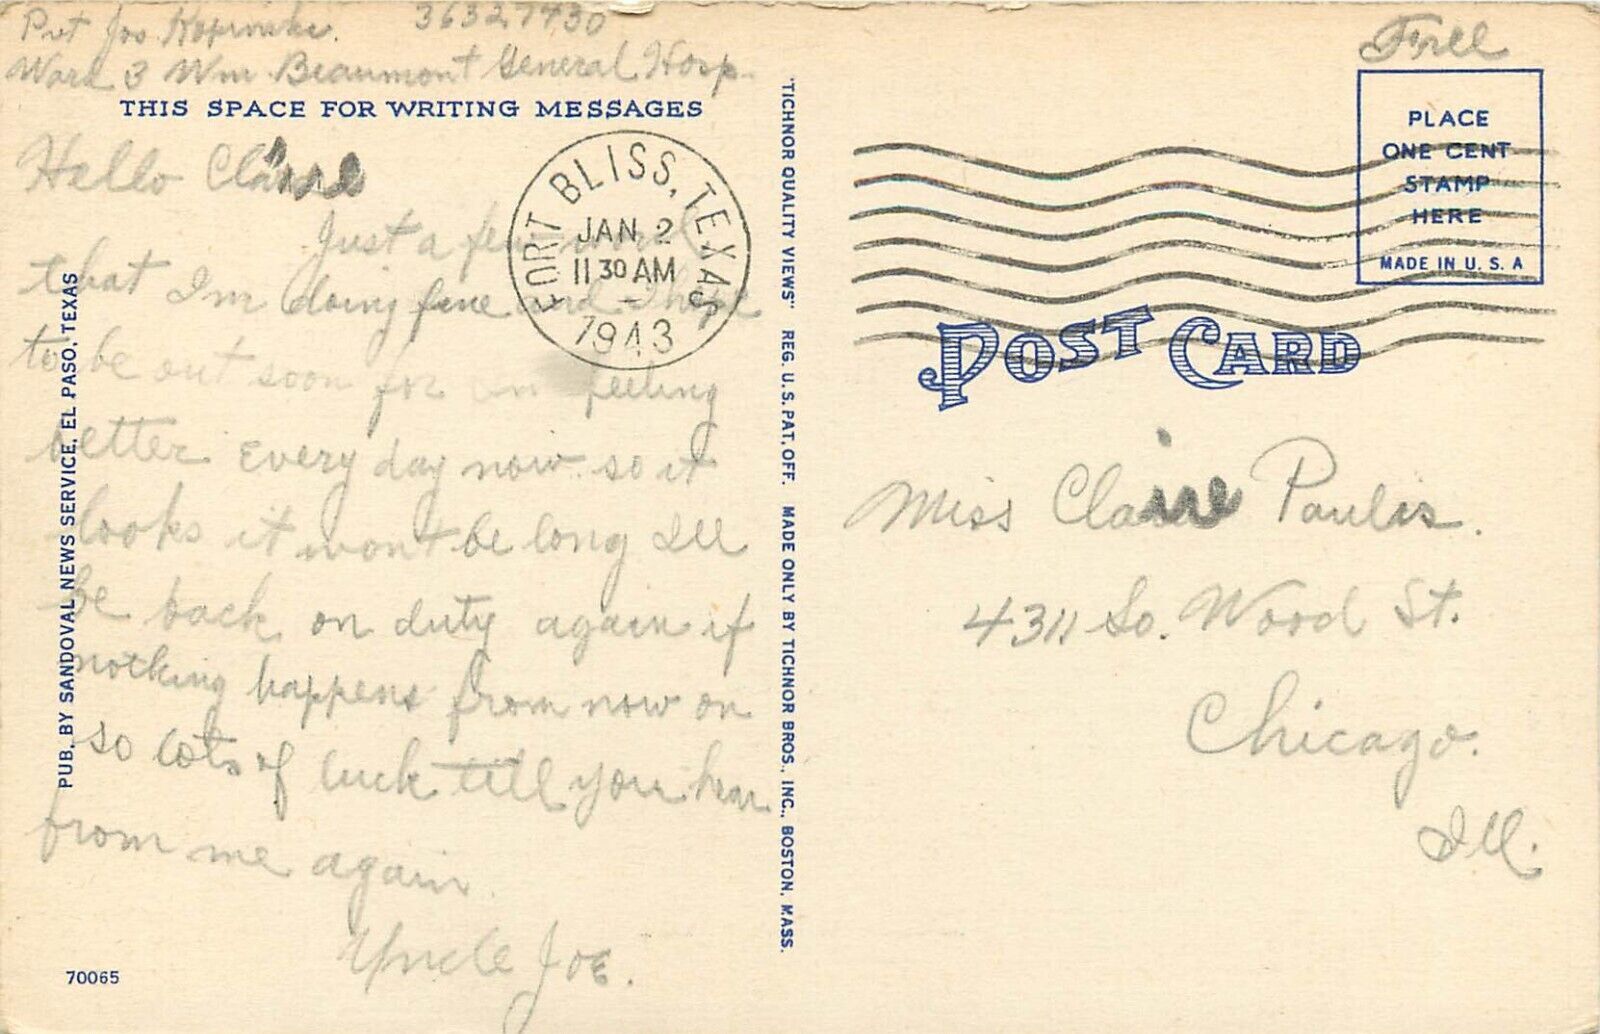 Pvt Jos. 36327430
Ward 3 Wm. Beaumont General Hosp.
THIS SPACE FOR WRITING MESSAGES
Hello Claire
Just a few
that I'm doing fine and I hope
to be out soon for Im feeling
better every day now. so it
looks it wont be long Ill
be back on duty again if
nothing happens from now on
so lots of luck till you hear
from me again.
Uncle Joe.
70065
PUB. BY SANDOVAL NEWS SERVICE, EL PASO, TEXAS
FORT BLISS, TEXAS
JAN 2
11 30 AM
1943
"TICHNOR QUALITY VIEWS" REG. U. S. PAT. OFF. MADE ONLY BY TICHNOR BROS., INC., BOSTON, MASS.
Free
PLACE
ONE CENT
STAMP
HERE
MADE IN U. S. A
POST CARD
Miss Claire Paulis.
4311 So. Wood St.
Chicago.
Ill.